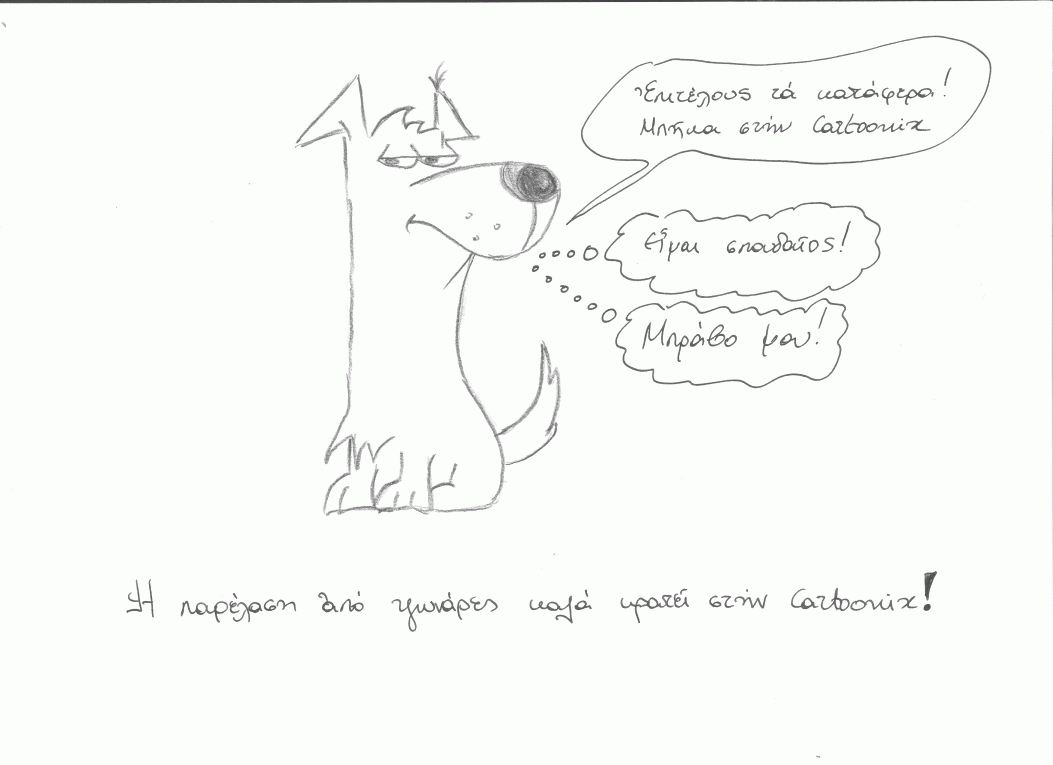 Ἐπιτέλους τά κατάφερα!
Μπῆκα στήν Cartoonix
Εἶμαι σπουδαῖος!
Μπράβο μου!
Ἡ παρέλαση ἀπό ψωνάρες καλά κρατεῖ στήν Cartoonix!